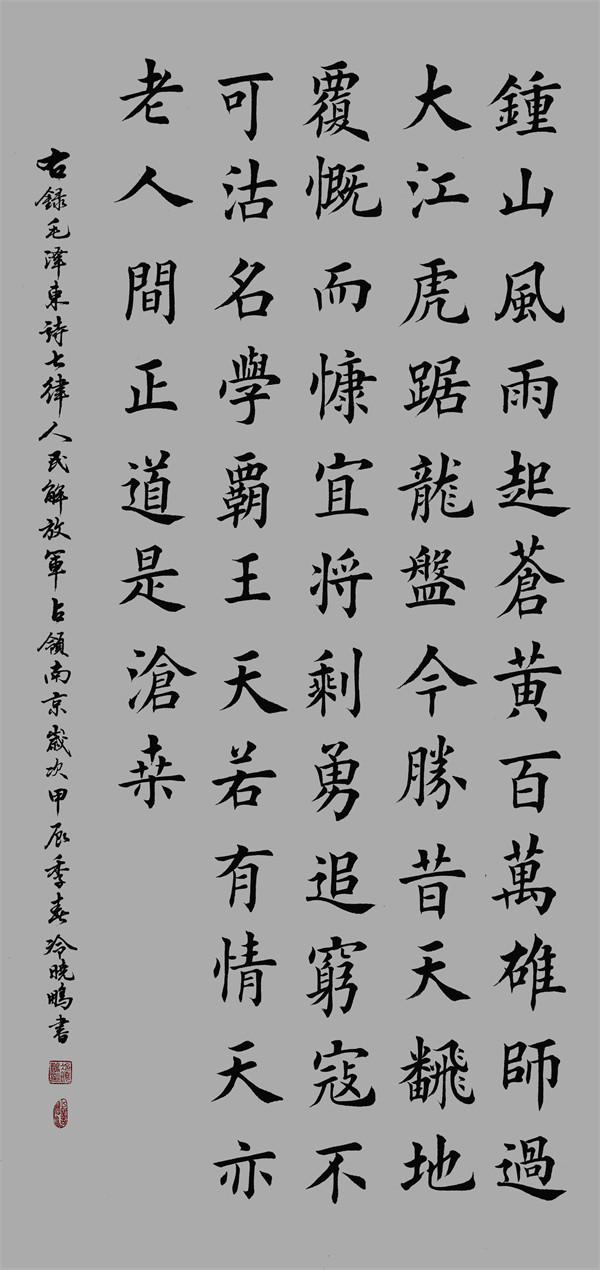 鍾山風雨起蒼黃百萬雄師過
大江虎踞龍盤今勝昔天飜地
覆慨而慷宜将剩勇追窮寇不
可沽名學霸王天若有情天亦
老人間正道是滄桒
右録毛澤東詩七律人民解放軍占領南京歲次甲辰季春曉鵬書